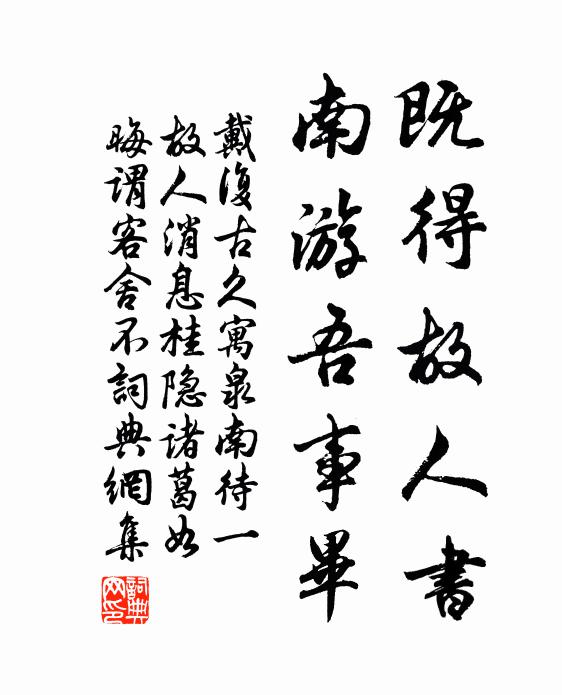 既得故人書
南游吾事畢
戴復古久寓泉南待一
故人消息桂隐诸葛如
晦謂客舍不詞典網集
詞典
网印